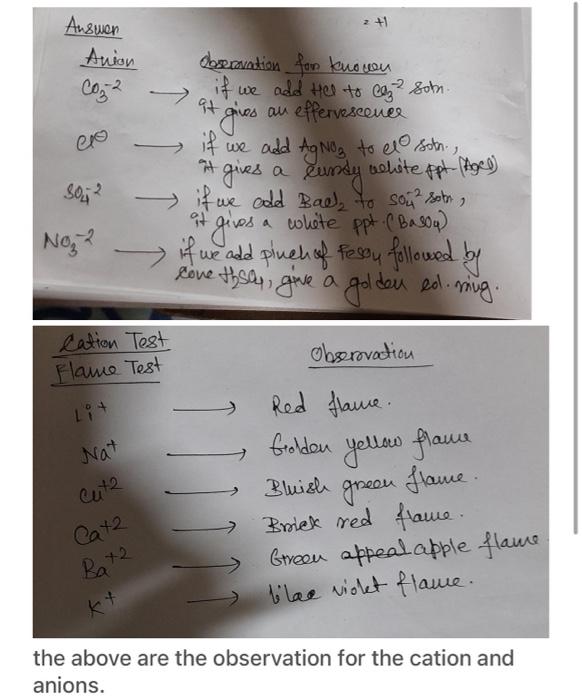 Answer
= +1
Anion Observation for known
CO₃⁻² → if we add HCl to CO₃⁻² soln.
it gives an effervescence
Cl⊖ → if we add AgNO₃ to Cl⊖ soln.,
it gives a curdy white ppt (AgCl)
SO₄⁻² → if we add BaCl₂ to SO₄⁻² soln,
it gives a white ppt. (BaSO₄)
NO₃⁻² → if we add pinch of FeSO₄ followed by
conc H₂SO₄, give a golden col. ring.
Cation Test
Flame Test Observation
Li⁺ → Red flame.
Na⁺ → Golden yellow flame
Cu⁺² → Bluish green flame.
Ca⁺² → Brick red flame.
Ba⁺² → Green appeal apple flame
K⁺ → lilac violet flame.
the above are the observation for the cation and
anions.